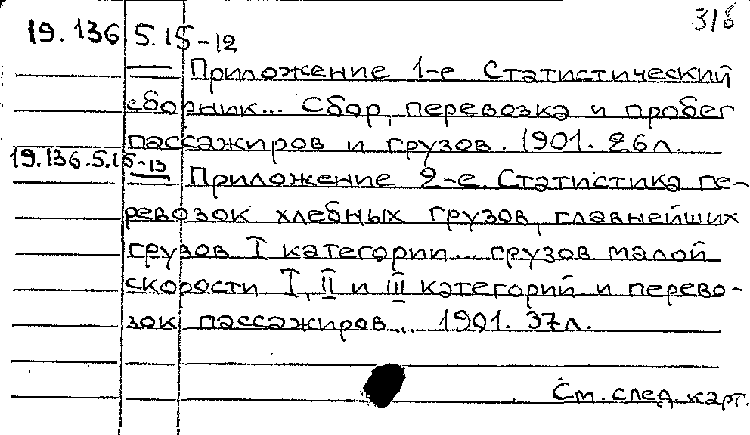 3/8
19.136.5.15-12
Приложение 1-е Статистический
сборник... Сбор, перевозка и пробег
пассажиров и грузов. 1901. 26л.
19.136.5.15-13
Приложение 2-е. Статистика пе-
ревозок хлебных грузов, главнейших
грузов I категории... грузов малой
скорости I, II и III категорий и перево-
зок пассажиров... 1901. 37л.
См. след. карт.